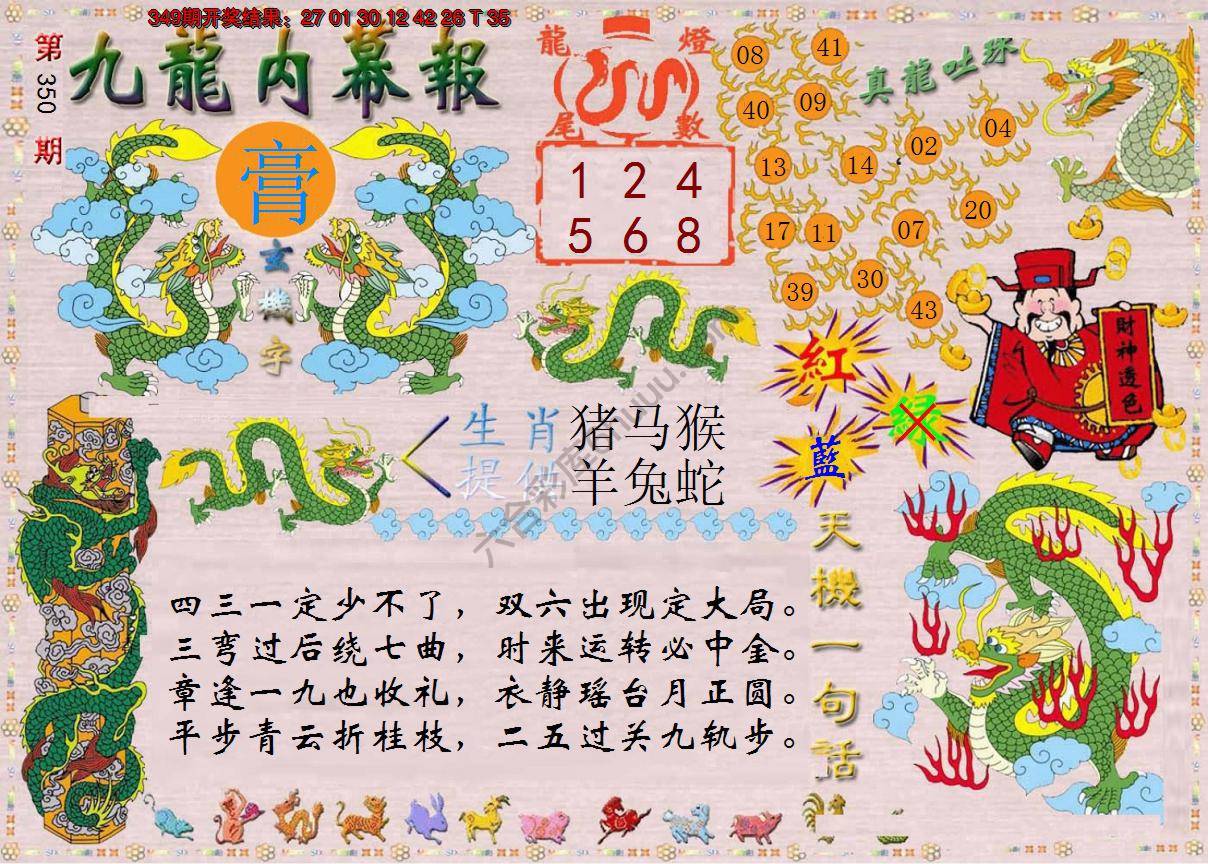 349期开奖结果：27 01 30 12 42 26 T 35
第350期
九龍内幕報
膏
玄機字
龍燈
尾數
1 2 4
5 6 8
真龍吐珠
08 41
40 09
04
02
13 14
20
17 11 07
39 30
43
財神透色
紅
绿
藍
生肖
提供
猪马猴
羊兔蛇
四三一定少不了，双六出现定大局。
三弯过后绕七曲，时来运转必中金。
章逢一九也收礼，衣静瑶台月正圆。
平步青云折桂枝，二五过关九轨步。
天機一句話